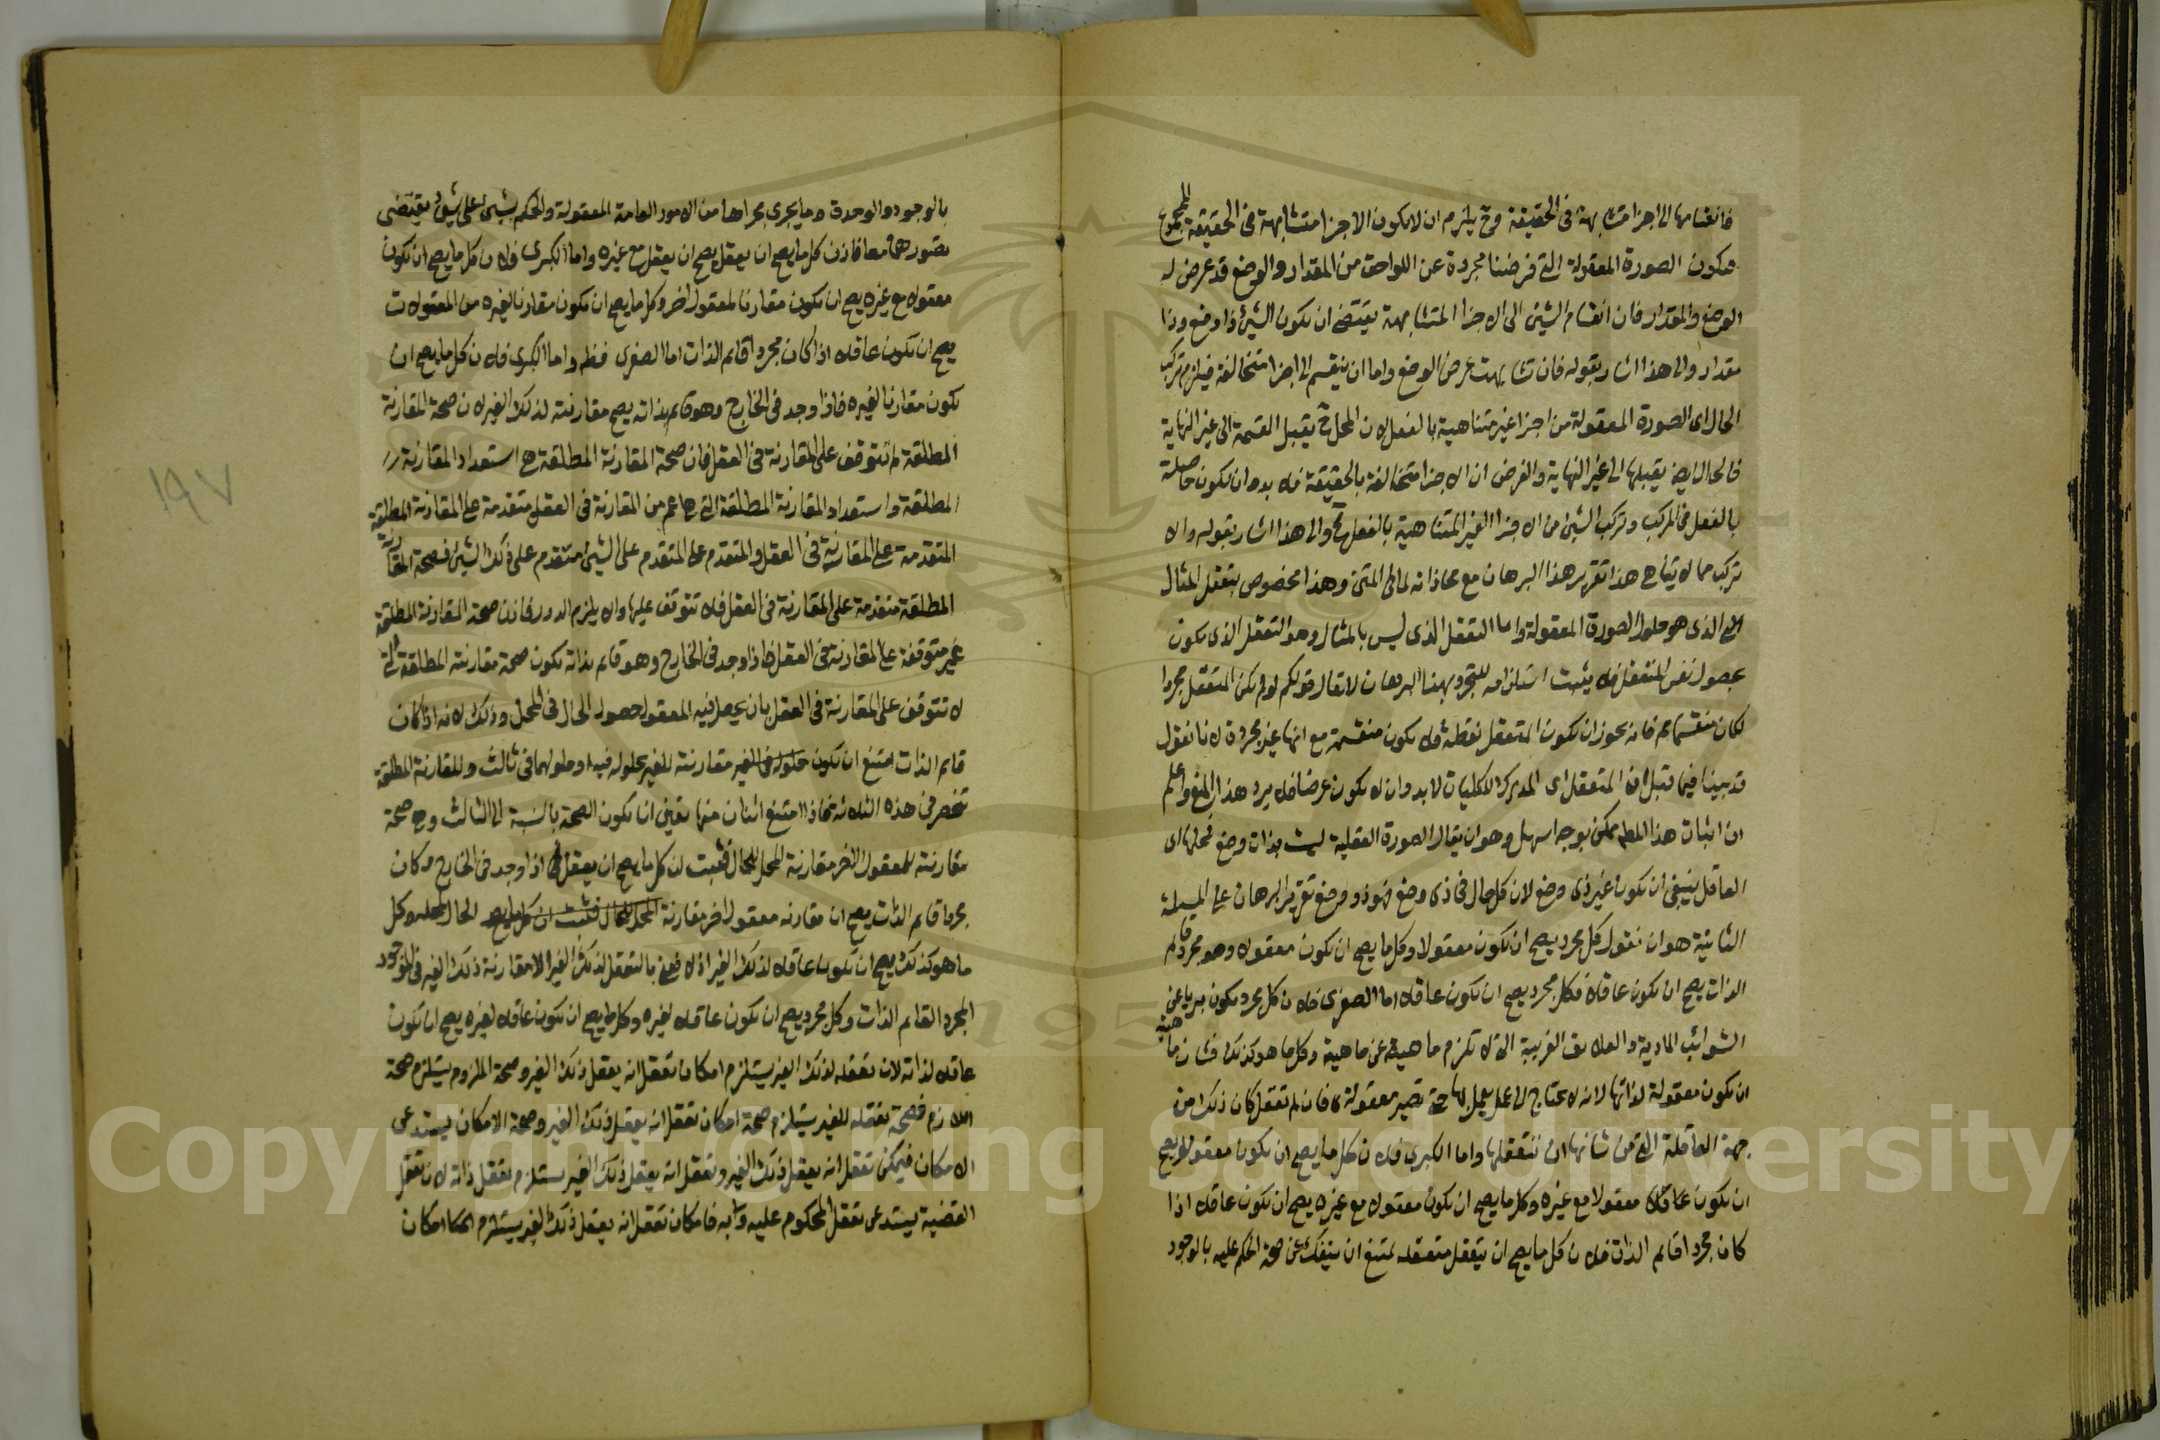 فانقسامها الى اجزا متشابهة فى الحقيقة وح يلزم ان لا يكون الاجزا متشابهة فى الحقيقة للمجموع
فتكون الصورة المعقولة التى فرضنا مجردة عن اللواحق من المقدار والوضع قد عرض له
الوضع والمقدار فان انقسام الشيئ الى الاجزا المتشابهة يقتضى ان يكون الشيئ ذا وضع وذا
مقدار والى هذا اشار بقوله فان تشابهت عرض الوضع واما ان ينقسم الى اجزا متخالفة فيلزم تركب
الحال اى الصورة المعقولة من اجزا غير متناهية بالفعل لان المحل ح يقبل القسمة الى غير النهاية
فالحال ايض يقبلها الى غير النهاية والفرض ان الاجزا متخالفة بالحقيقة فلا بد وان تكون حاصلة
بالفعل فى المركب وتركب الشيئ من الاجزا الغير المتناهية بالفعل مح والى هذا اشار بقوله والا
تركب مما لا يتناهى هذا تقرير هذا البرهان مع محاذاته لما فى المتن وهذا مخصوص بتعقل المثال
الذى هو حلول الصورة المعقولة واما التعقل الذى ليس بالمثال وهو التعقل الذى يكون
بحصول نفس المتعقل فلا يثبت استلزامه للتجرد بهذا البرهان لا تقال قولكم لو لم يكن المتعقل مجردا
لكان منقسما مم فانه يجوز ان يكون المتعقل نقطة فلا يكون منقسمة مع انها غير مجردة لانا نقول
قد بينا فيما قبل ان المتعقل اى المدرك للكليات لا بد وان لا يكون عرضا فلا يرد هذا المنع واعلم
ان اثبات هذا المط ممكن بوجه اسهل وهو ان يقال الصورة العقلية ليست بذات وضع فمحلها اى
العاقل ينبغى ان يكون غير ذى وضع لان كل حال فى ذى وضع فهو ذو وضع تقرير البرهان على المسئلة
الثانية هو ان نقول كل مجرد يصح ان يكون معقولا وكل ما يصح ان يكون معقولا وهو مجرد قائم
الذات يصح ان يكون عاقلا فكل مجرد يصح ان يكون عاقلا اما الصغرى فلان كل مجرد يكون بريا عن
الشوائب المادية والعلائق الغريبة التى لا تلزم ماهيته عن ماهيته وكل ما هو كذلك فشان ماهيته
ان يكون معقولة لذاتها لانه لا يحتاج الى عمل يعمل بها حتى تصير معقولة فان لم تعقل كان ذلك من
جهة العاقلة التى من شانها ان تتعقلها واما الكبرى فلان كل ما يصح ان يكون معقولا يصح
ان يكون معقولا مع غيره وكل ما يصح ان يكون معقولا مع غيره يصح ان يكون عاقلا اذا
كان مجردا قائم الذات فلان كل ما يصح ان يتعقل متعقله يمتنع ان ينفك عن صحة الحكم عليه بالوجود
بالوجود والوحدة وما يجرى مجراها من الامور العامة المعقولة والحكم بشئ على شئ يقتضى
تصورهما معا فاذن كل ما يصح ان يعقل يصح ان يعقل مع غيره واما الكبرى فلان كل ما يصح ان يكون
معقولا مع غيره يصح ان يكون مقارنا لمعقول اخر وكل ما يصح ان يكون مقارنا لغيره من المعقولات
يصح ان يكون عاقلا اذا كان مجردا قائم الذات اما الصغرى فظ واما الكبرى فلان كل ما يصح ان
يكون مقارنا لغيره فاذا وجد فى الخارج وهو قائم بذاته يصح مقارنته لذلك الغير لان صحة المقارنة
المطلقة لم تتوقف على المقارنة فى العقل فان صحة المقارنة المطلقة هى استعداد المقارنة
المطلقة واستعداد المقارنة المطلقة التى هى اعم من المقارنة فى العقل متقدمة على المقارنة المطلقة
المتقدمة على المقارنة فى العقل والمتقدم على المتقدم على الشيئ متقدم على ذلك الشيئ فصحة المقارنة
المطلقة متقدمة على المقارنة فى العقل فلا تتوقف عليها والا يلزم الدور فاذن صحة المقارنة المطلقة
غير متوقفة على المقارنة فى العقل فاذا وجد فى الخارج وهو قائم بذاته يكون صحة مقارنته المطلقة التى
لا تتوقف على المقارنة فى العقل بان يحصل فيه المعقول حصول الحال فى المحل وذلك لانه اذا كان
قائم الذات امتنع ان يكون مقارنته للغير بحلوله فيه او حلولهما فى ثالث والمقارنة المطلقة
تنحصر فى هذه الثلاثة فاذا امتنع اثنان منها تعين ان يكون الصحة بالنسبة الى الثالث وهى صحة
مقارنته للمعقول الاخر مقارنة المحل للحال فثبت ان كل ما يصح ان يعقل اذا وجد فى الخارج وكان
مجردا قائم الذات يصح ان يقارنه معقول اخر مقارنة الحال لمحله وكل
ما هو كذلك يصح ان يكون عاقلا لذلك الغير اذ لا نعنى بالتعقل لذلك الغير الا مقارنة ذلك الغير فى الموجود
المجرد القائم الذات وكل مجرد يصح ان يكون عاقلا لغيره وكل ما يصح ان يكون عاقلا لغيره يصح ان يكون
عاقلا لذاته لان تعقله لذلك الغير يستلزم امكان تعقل انه يعقل ذلك الغير وصحة الملزوم يستلزم صحة
اللازم فصحة تعقله للغير يستلزم صحة امكان تعقل انه يعقل ذلك الغير وصحة الامكان يستدعى
الامكان فيمكن تعقل انه يعقل ذلك الغير وتعقل انه يعقل ذلك الغير يستلزم تعقل ذاته لان تعقل
القضية يستدعى تعقل المحكوم عليه وبه فامكان تعقل انه يعقل ذلك الغير يستلزم امكان
١٩٧
Copyright © King Saud University
1957